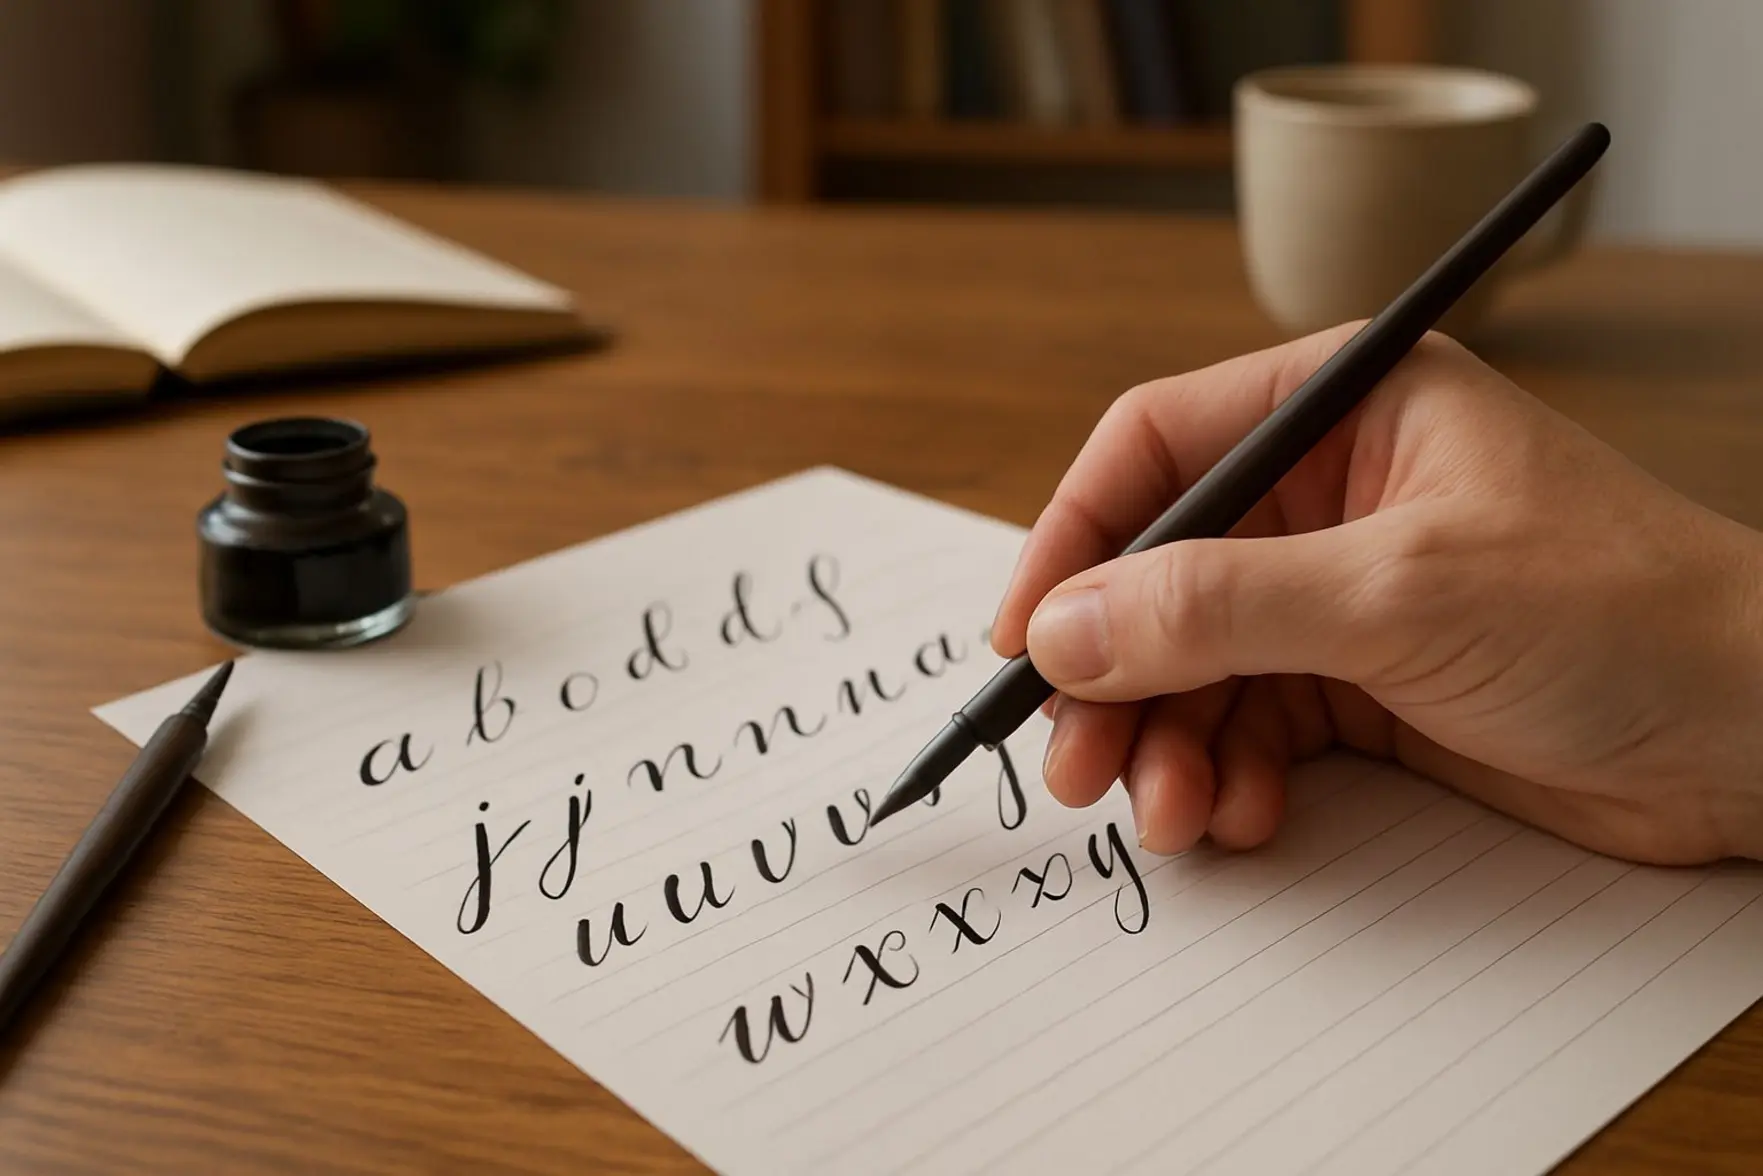 a b o d d
j j n n n a
u u v v
w x x x y